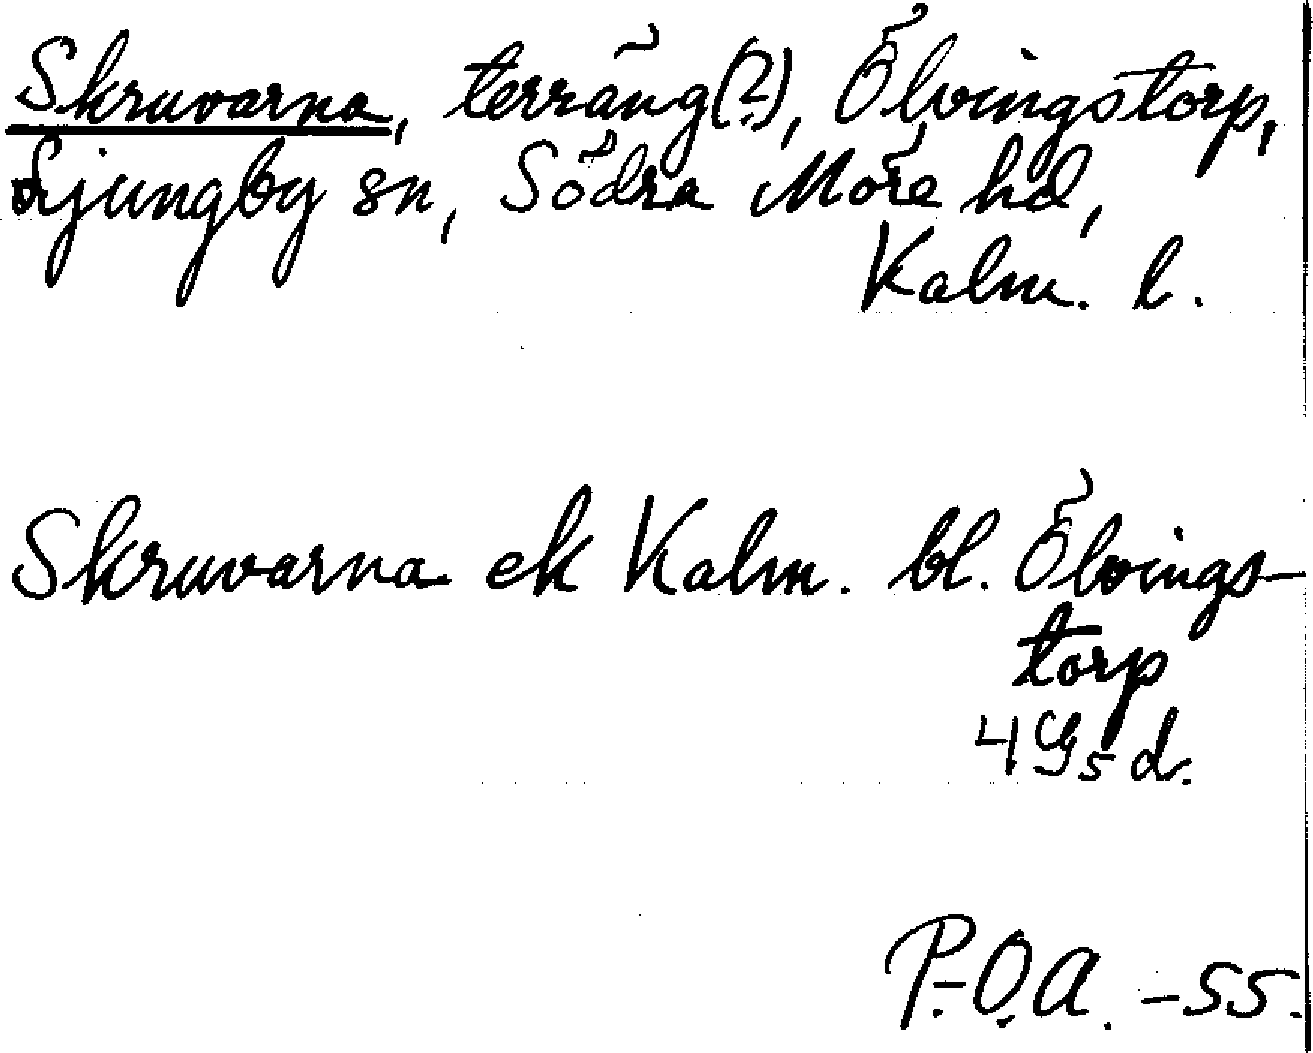 Skruvarna, terräng(?), Ölvingstorp,
Ljungby sn, Södra Möre hd,
Kalm. l.
Skruvarna ek Kalm. bl. Ölvings-
torp
4 G5 d.
P.-O.A. -55.